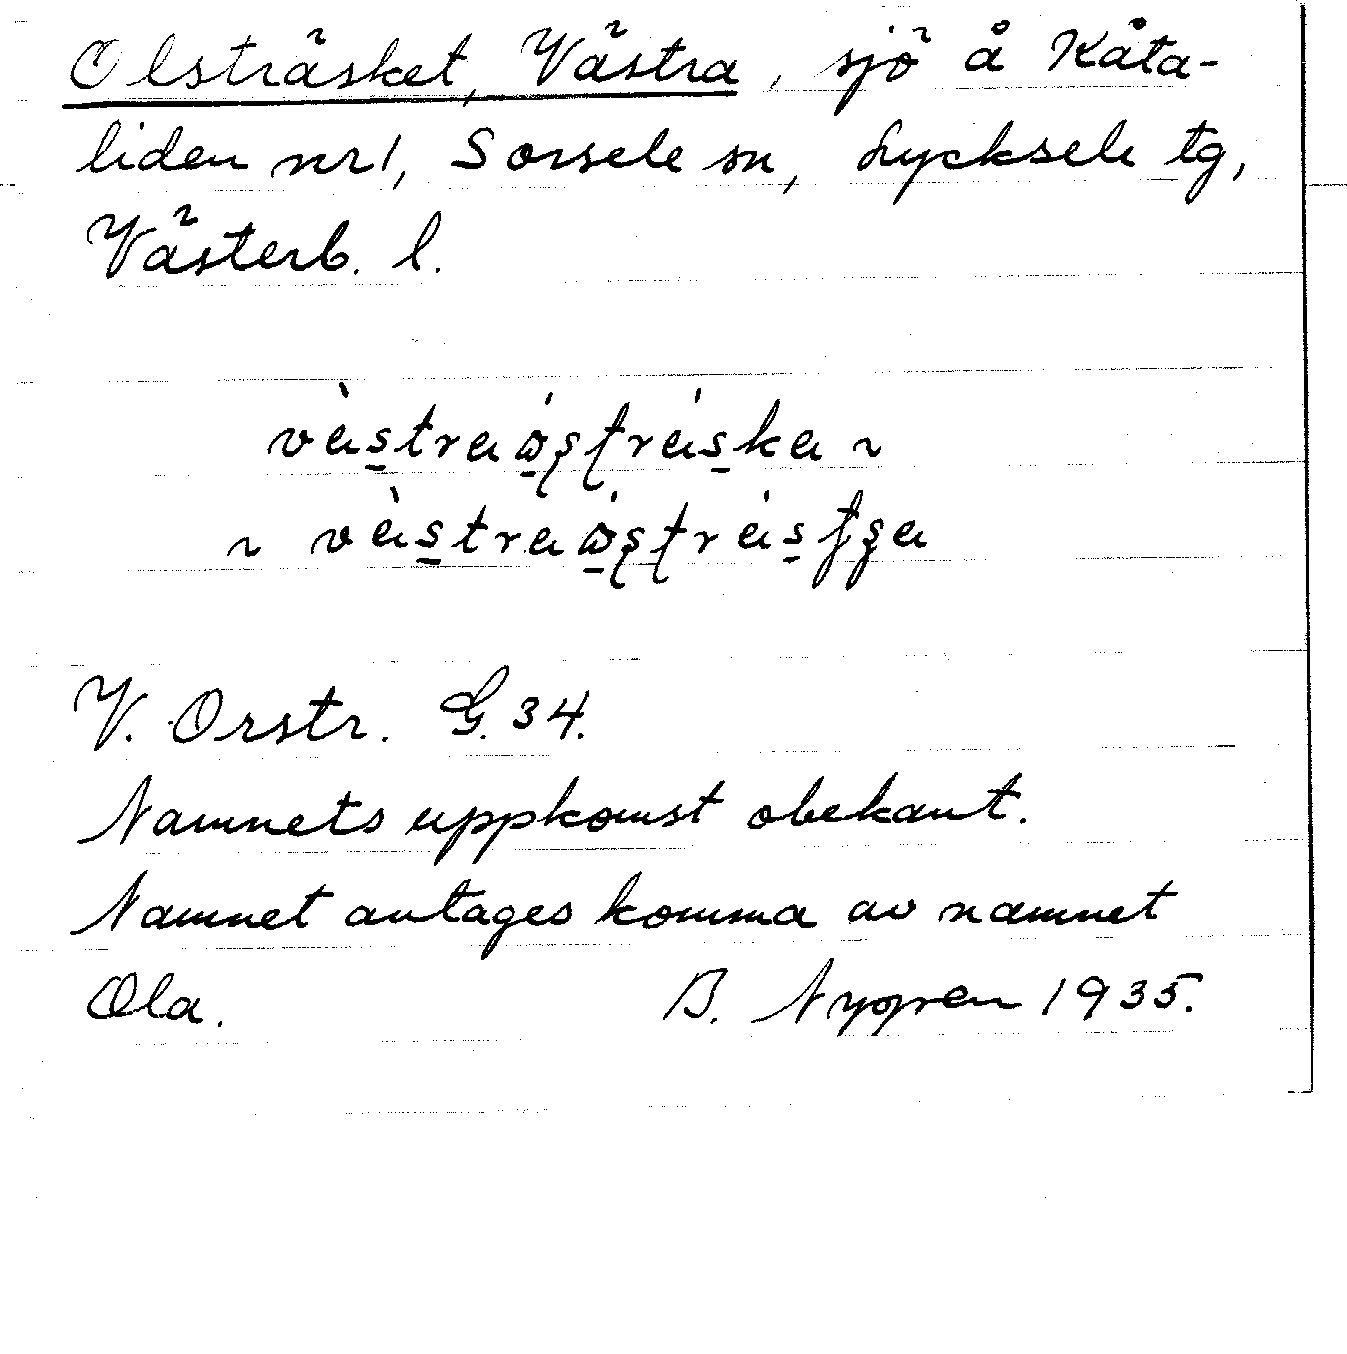 Olsträsket, Västra, sjö å Kåta-
liden nr 1, Sorsele sn, Lycksele tg,
Västerb. l.
V. Orstr. G. 34.
Namnets uppkomst obekant.
Namnet antages komma av namnet
Ola. B. Nygren 1935.